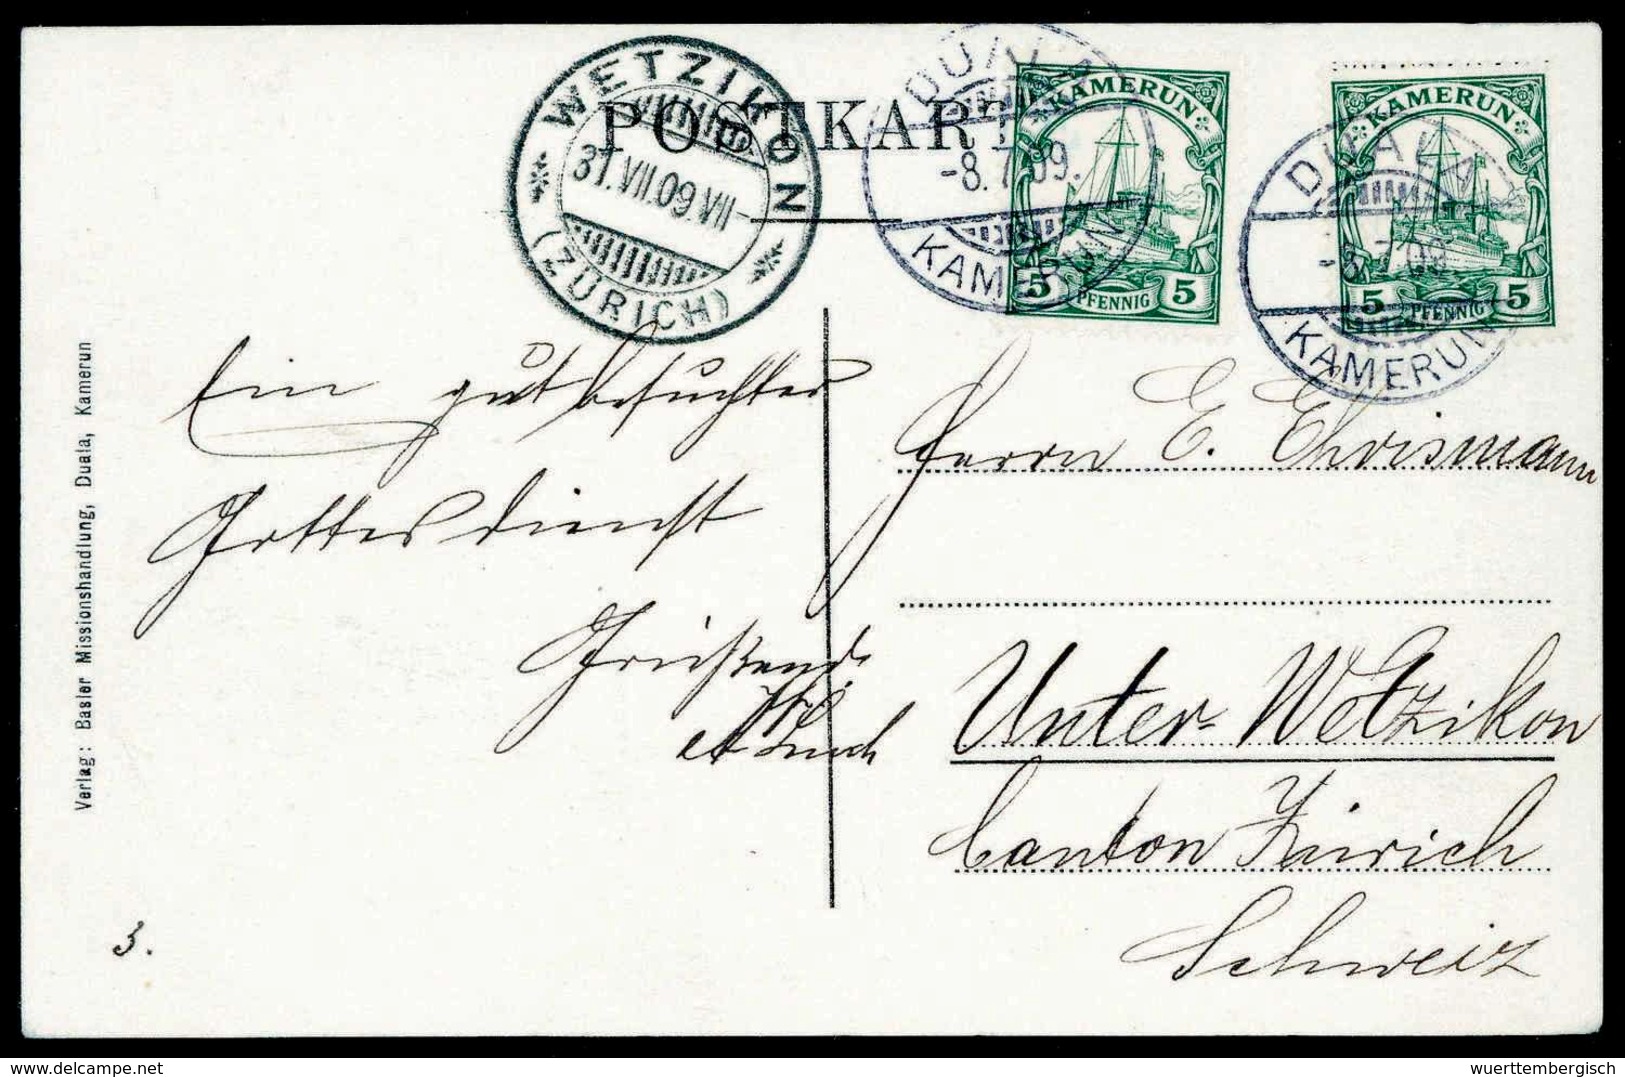 POSTKARTE
WETZIKON
31.VII.09.VII-
(ZÜRICH)
DUALA
-8.7.09.
KAMERUN
KAMERUN
5 PFENNIG 5
DUALA
-8.7.09.
KAMERUN
KAMERUN
5 PFENNIG 5
Ein gut besuchter
Gottesdienst
Grüßend
Herrn E. Ehrismann
Unter-Wetzikon
Canton Zürich
Schweiz
Verlag: Basler Missionshandlung, Duala, Kamerun
3.
delcampe.net
wuerttembergisch